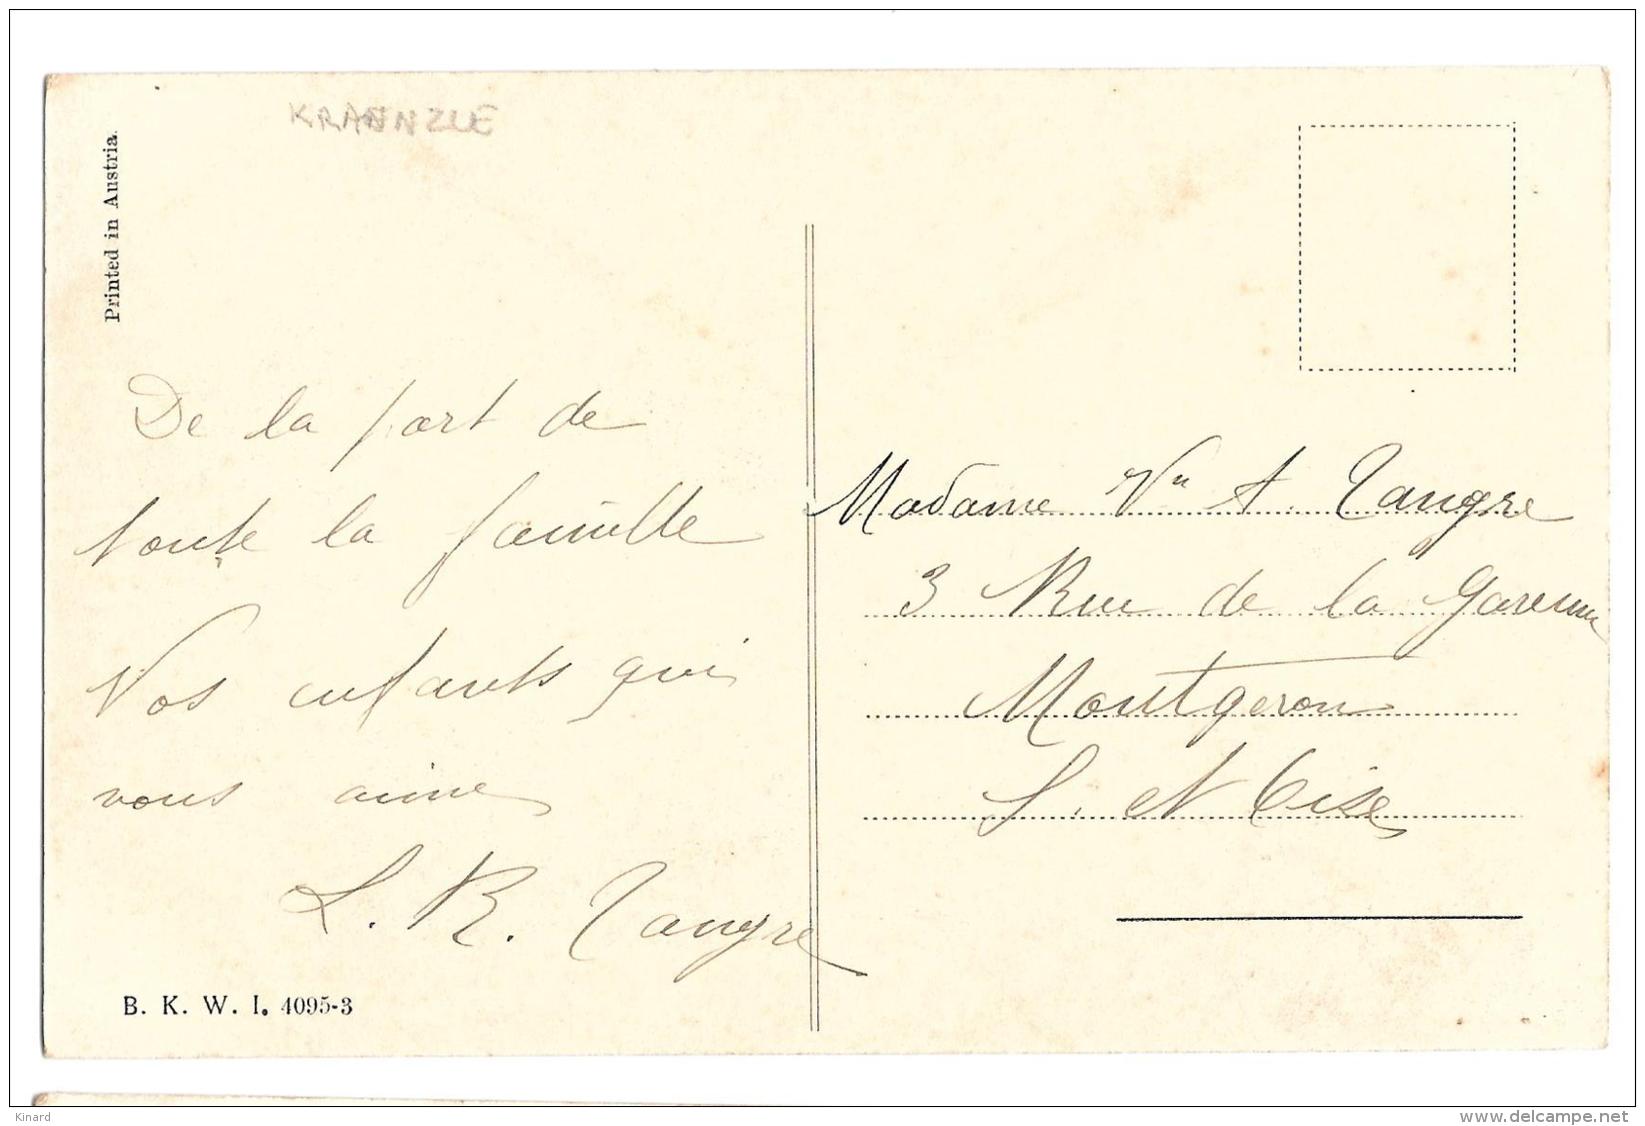 KRAENZLE
Printed in Austria.
De la part de
toute la famille
Vos enfants qui
vous aime
L. R. Tangre
B. K. W. I. 4095-3
Madame Vve A. Tangre
3 Rue de la Garenne
Montgeron
S. et Oise
Kinard
delcampe.net